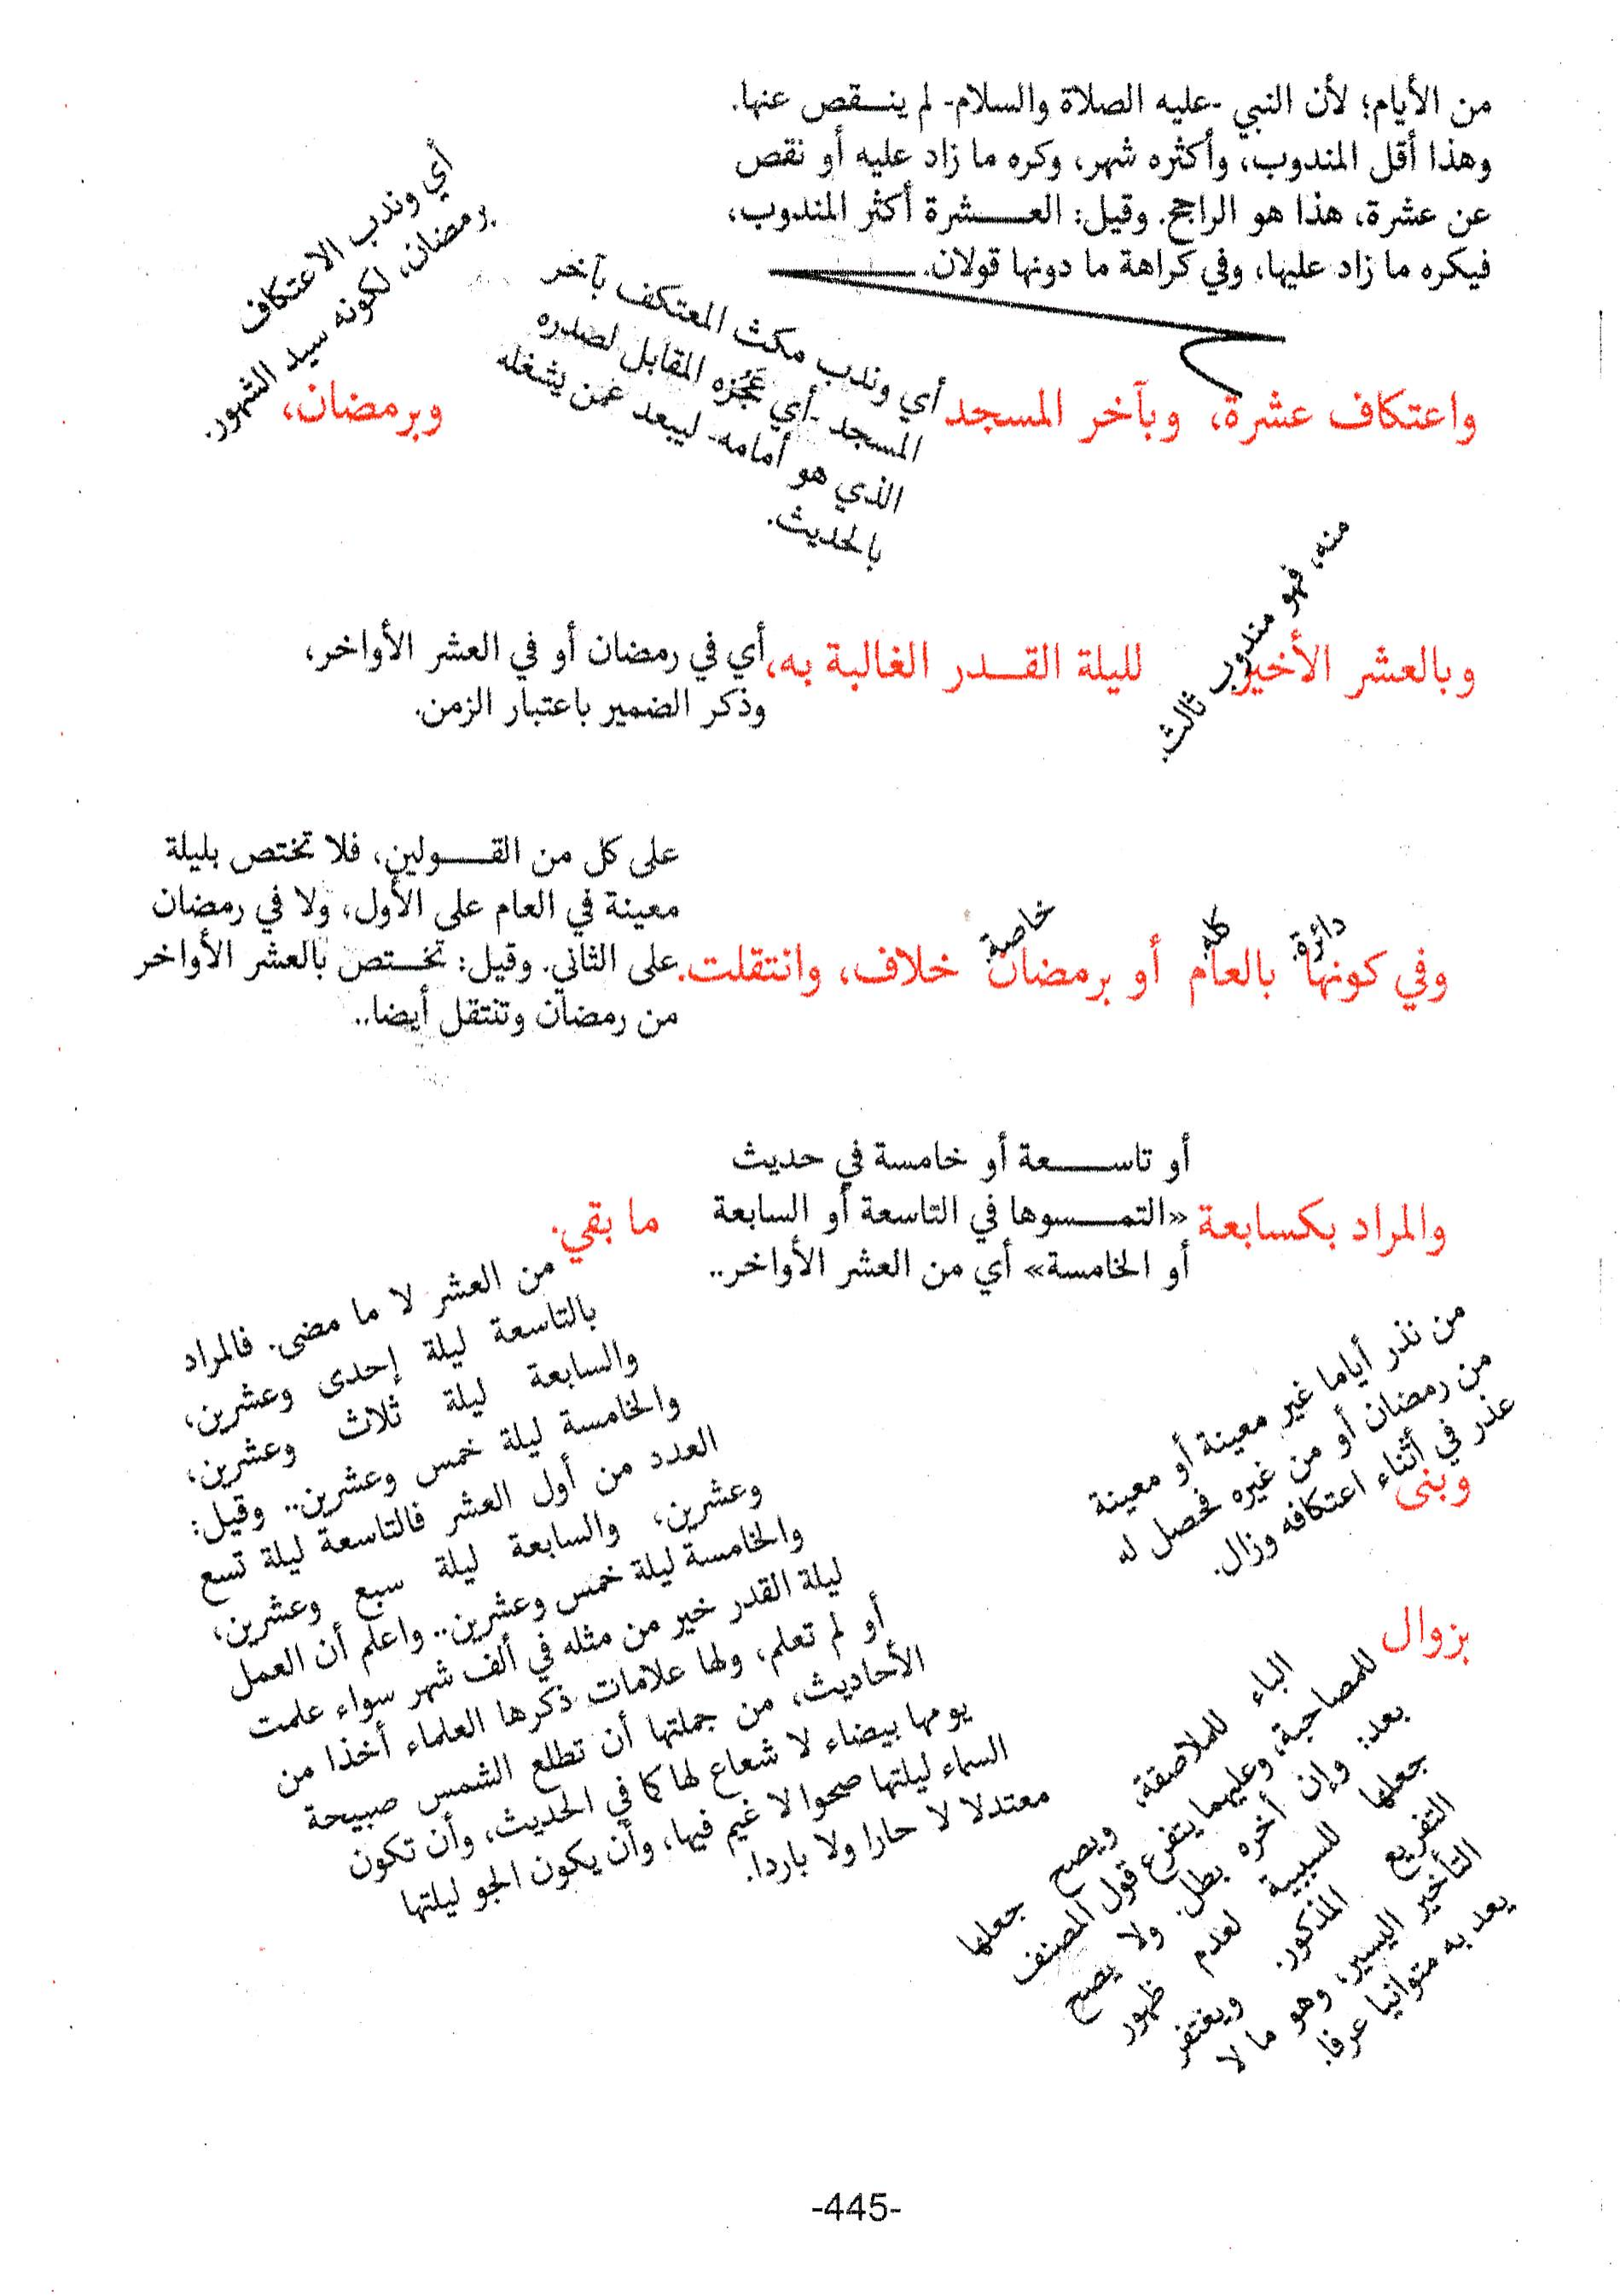 من الأيام؛ لأن النبي -عليه الصلاة والسلام- لم ينقص عنها.
وهذا أقل المندوب، وأكثره شهر، وكره ما زاد عليه أو نقص
عن عشرة، هذا هو الراجح. وقيل: العشرة أكثر المندوب،
فيكره ما زاد عليها، وفي كراهة ما دونها قولان.
واعتكاف عشرة، وبآخر المسجد
أي وندب مكث المعتكف بآخر
المسجد -أي عَجُزه المقابل لصدره
الذي هو أمامه- ليبعد عمن يشغله
بالحديث.
وبرمضان،
أي وندب الاعتكاف
برمضان، لكونه سيد الشهور.
وبالعشر الأخير
منه، فهو مندوب ثالث.
لليلة القدر الغالبة به،
أي في رمضان أو في العشر الأواخر،
وذكر الضمير باعتبار الزمن.
وفي كونها دائرة بالعام كله أو برمضان خاصة خلاف، وانتقلت.
على كل من القولين، فلا تختص بليلة
معينة في العام على الأول، ولا في رمضان
على الثاني. وقيل: تختص بالعشر الأواخر
من رمضان وتنتقل أيضا..
والمراد بكسابعة
أو تاسعة أو خامسة في حديث
«التمسوها في التاسعة أو السابعة
أو الخامسة» أي من العشر الأواخر..
ما بقي.
من العشر لا ما مضى. فالمراد
بالتاسعة ليلة إحدى وعشرين،
والسابعة ليلة ثلاث وعشرين،
والخامسة ليلة خمس وعشرين.. وقيل:
العدد من أول العشر فالتاسعة ليلة تسع
وعشرين، والسابعة ليلة سبع وعشرين،
والخامسة ليلة خمس وعشرين.. واعلم أن العمل
ليلة القدر خير من مثله في ألف شهر سواء علمت
أو لم تعلم، ولها علامات ذكرها العلماء أخذا من
الأحاديث، من جملتها أن تطلع الشمس صبيحة
يومها بيضاء لا شعاع لها كما في الحديث، وأن تكون
السماء ليلتها صحوا لا غيم فيها، وأن يكون الجو ليلتها
معتدلا لا حارا ولا باردا.
وبنى
من نذر أياما غير معينة أو معينة
من رمضان أو من غيره فحصل له
عذر في أثناء اعتكافه وزال.
بزوال
الباء للملاصقة، ويصح جعلها
للمصاحبة، وعليهما يتفرع قول المصنف
بعد: وإن أخره بطل. ولا يصح
جعلها للسببية لعدم ظهور
التفريع المذكور. ويغتفر
التأخير اليسير، وهو ما لا
يعد به متوانيا عرفا.
-445-